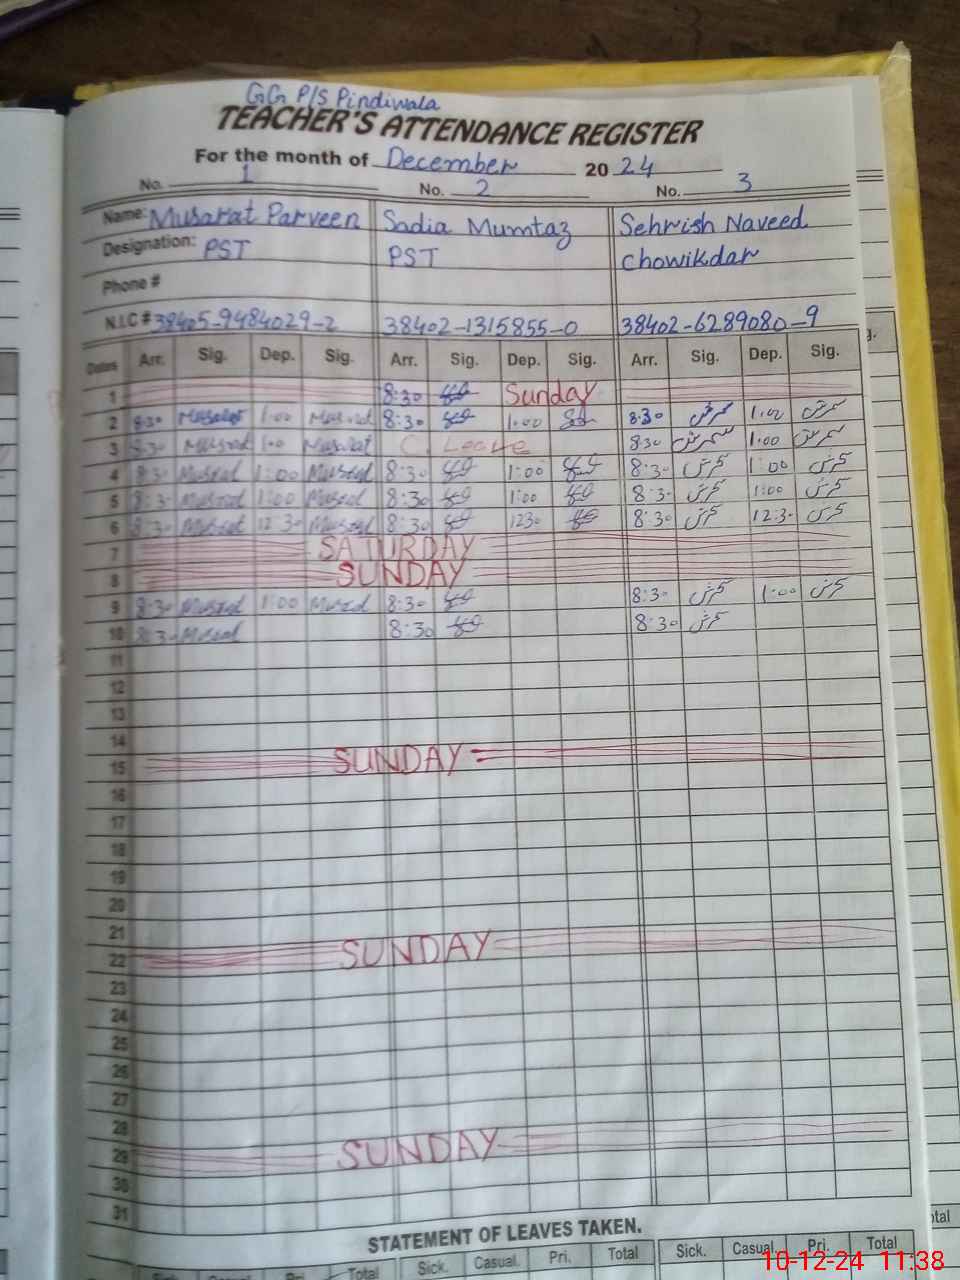 GG P/S Pindiwala
TEACHER'S ATTENDANCE REGISTER
For the month of December 2024
No. 1 No. 2 No. 3
Name: Musarat Parveen Sadia Mumtaz Sehrish Naveed
Designation: PST PST Chowikdar
Phone #
N.I.C # 38405-9484029-2 38402-1315855-0 38402-6289080-9
Dates Arr. Sig. Dep. Sig. Arr. Sig. Dep. Sig. Arr. Sig. Dep. Sig.
1 8:30 Sunday
2 8:30 Musarat 1:00 8:30 1:00 8:30 سحرش 1:00 سحرش
3 8:30 1:00 Musarat C. Leave 8:30 سحرش 1:00 سحرش
4 8:30 1:00 8:30 1:00 8:30 1:00
5 8:30 1:00 8:30 1:00 8:30 1:00
6 8:30 12:30 8:30 1230 8:30 12:30
7 SATURDAY
8 SUNDAY
9 8:30 1:00 8:30 8:30 1:00
10 8:30 8:30 8:30
11
12
13
14
15 SUNDAY
16
17
18
19
20
21
22 SUNDAY
23
24
25
26
27
28
29 SUNDAY
30
31
STATEMENT OF LEAVES TAKEN.
Sick. Casual. Pri. Total Sick. Casual. Pri. Total Sick. Casual. Pri. Total
10-12-24 11:38